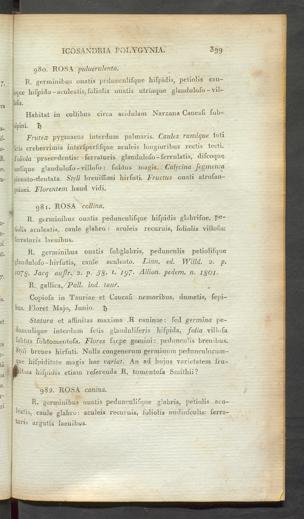 ICOSANDRIA POLYGYNIA. 399
980. ROSA pulverulenta.
R. germinibus ouatis pedunculisque hispidis, petiolis cau-
leque hispido-aculeatis, foliolis ouatis utrinque glanduloso-vil-
losis.
Habitat in collibus circa acidulam Narzana Caucasi sub-
alpini. ♄
Frutex pygmaeus interdum palmaris. Caules ramique toti
setis creberrimis interspersisque aculeis longioribus rectis tecti.
Foliola praecedentis: serraturis glanduloso-serrulatis, discoque
utrisque glanduloso-villoso: subtus magis. Calycina segmenta
pinnato-dentata. Styli breuissimi hirsuti. Fructus ouati atrosan-
guinei. Florentem haud vidi.
981. ROSA collina.
R. germinibus ouatis pedunculisque hispidis glabrisue, pe-
tiolis aculeatis, caule glabro: aculeis recuruis, foliolis villosis:
serraturis laeuibus.
R. germinibus ouatis subglabris, pedunculis petiolisque
glanduloso-hirsutis, caule aculeato. Linn. ed. Willd. 2. p.
1078. Jacq austr. 2. p. 58. t. 197. Allion. pedem. n. 1801.
R. gallica, Pall. ind. taur.
Copiosa in Tauriae et Caucasi nemoribus, dumetis, sepi-
bus. Floret Majo, Junio. ♄
Statura et affinitas maxima R. caninae: sed germina pe-
dunculique interdum setis glanduliferis hispida, folia villosa
subtus subtomentosa. Flores saepe gemini: pedunculis breuibus.
Styli breues hirsuti. Nulla congenerum germinum pedunculorum-
que hispiditate magis hac variat. An ad huius varietatem fru-
ctibus hispidis etiam referenda R. tomentosa Smithii?
982. ROSA canina.
R. germinibus ouatis pedunculisque glabris, petiolis acu-
leatis, caule glabro: aculeis recuruis, foliolis nudiusculis: serra-
turis argutis laeuibus.